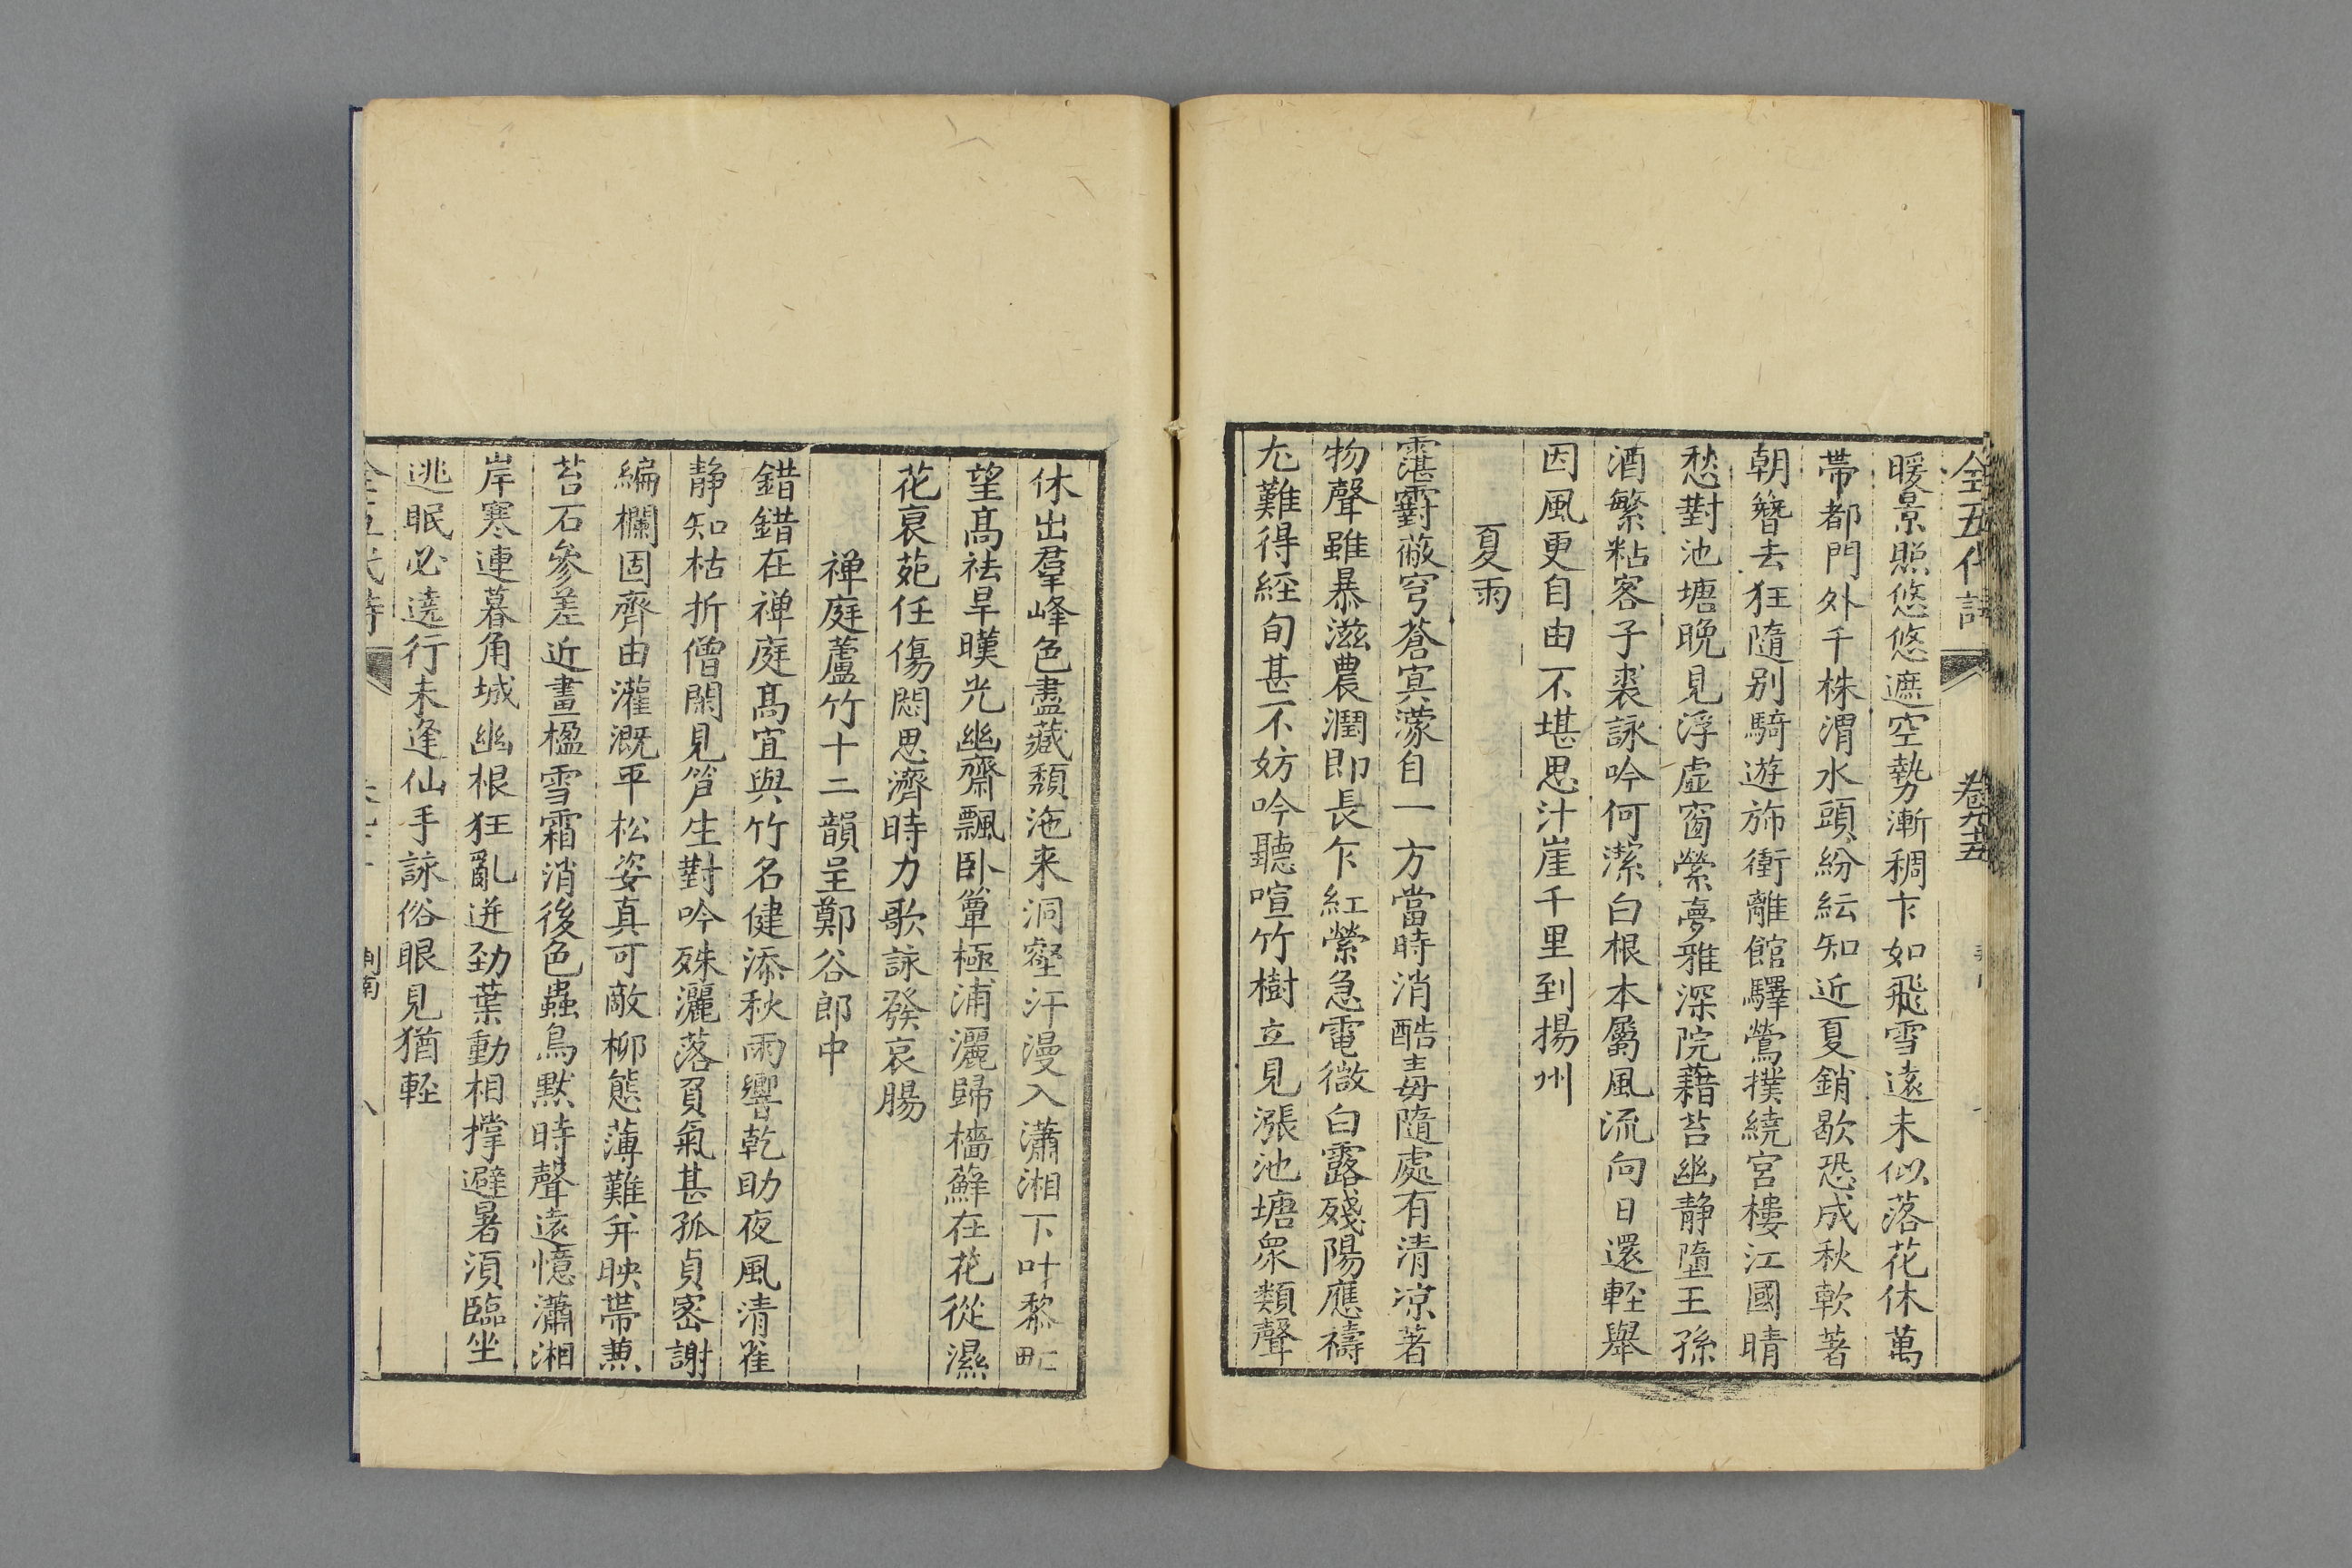 全五代詩
暖景照悠悠遮空勢漸稠乍如飛雪遠未似落花休萬
帶都門外千株渭水頭紛紜知近夏銷歇恐成秋軟著
朝簪去狂隨別騎遊旆衝離館驛鶯撲繞宮樓江國晴
愁對池塘晚見浮虛窗縈夢雅深院藉苔幽靜墮王孫
酒繁粘客子裘詠吟何潔白根本屬風流向日還輕舉
因風更自由不堪思汴崖千里到揚州
夏雨
霮䨴蔽穹蒼冥濛自一方當時消酷毒隨處有清涼著
物聲雖暴滋農潤即長乍紅縈急電微白露殘陽應禱
尤難得經旬甚不妨吟聽喧竹樹立見漲池塘眾類聲
休出羣峰色盡藏頹沲来洞壑汗漫入瀟湘下叶黎甿
望高祛旱暵光幽齋飄臥簟極浦灑歸檣蘚在花從濕
花衰苑任傷悶思濟時力歌詠發哀腸
禅庭蘆竹十二韻呈鄭谷郎中
錯錯在禅庭高宜與竹名健添秋雨響乾助夜風清雀
靜知枯折僧閑見笋生對吟殊灑落負氣甚孤貞密謝
編欄固齊由灌溉平松姿真可敵柳態薄難并映帶兼
苔石參差近畫楹雪霜消後色蟲鳥默時聲遠憶瀟湘
岸寒連暮角城幽根狂亂迸勁葉動相撐避暑須臨坐
逃眠必遶行未逢仙手詠俗眼見猶輕